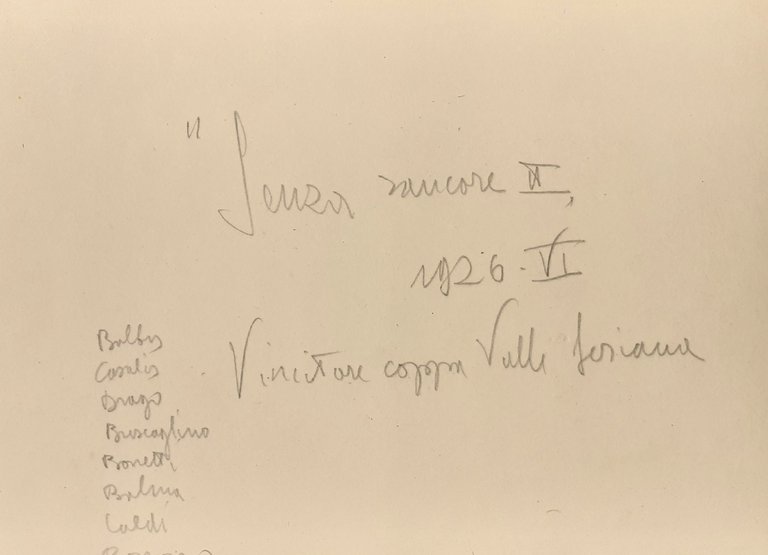 " Senza rancore II,
1926-VI
Vincitore coppa Valle Seriana
Balbis
Casalis
Drago
Buscaglino
Bonetti
Balma
Caldi